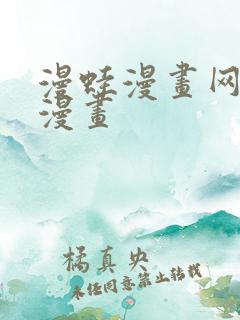 漫蛙漫畫网
漫畫
橘真央
未经同意禁止转载